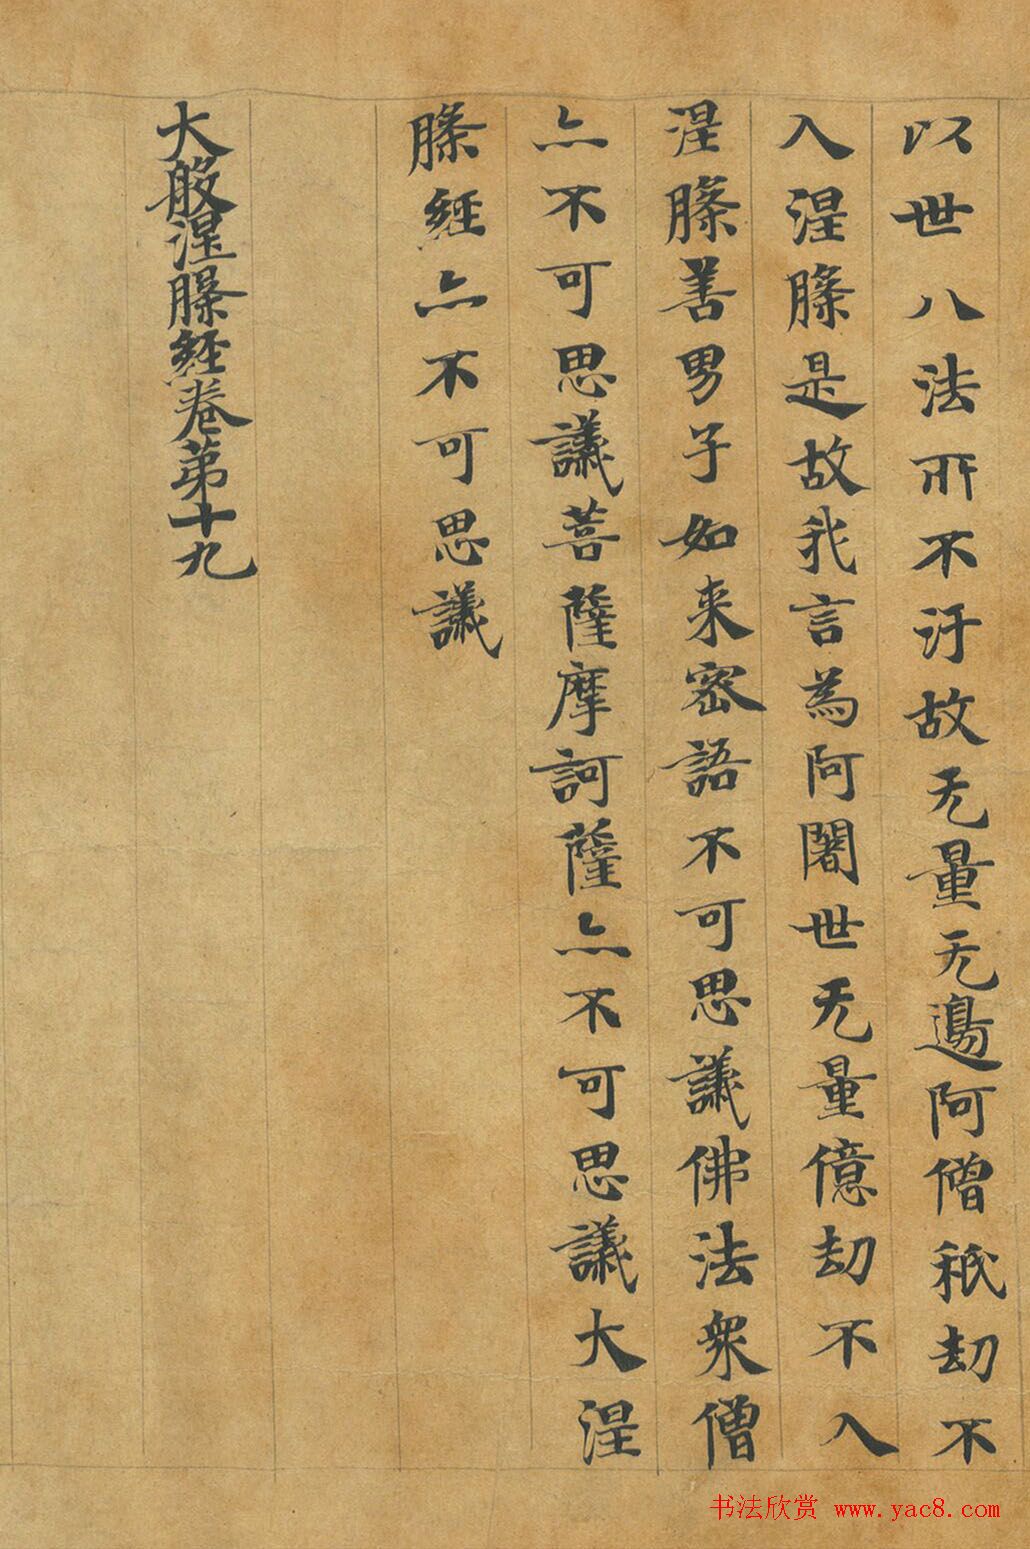 以世八法所不汙故无量无邊阿僧祇劫不
入涅槃是故我言為阿闍世无量億劫不入
涅槃善男子如来密語不可思議佛法衆僧
亦不可思議菩薩摩訶薩亦不可思議大涅
槃經亦不可思議
大般涅槃經卷第十九
书法欣赏 www.yac8.com